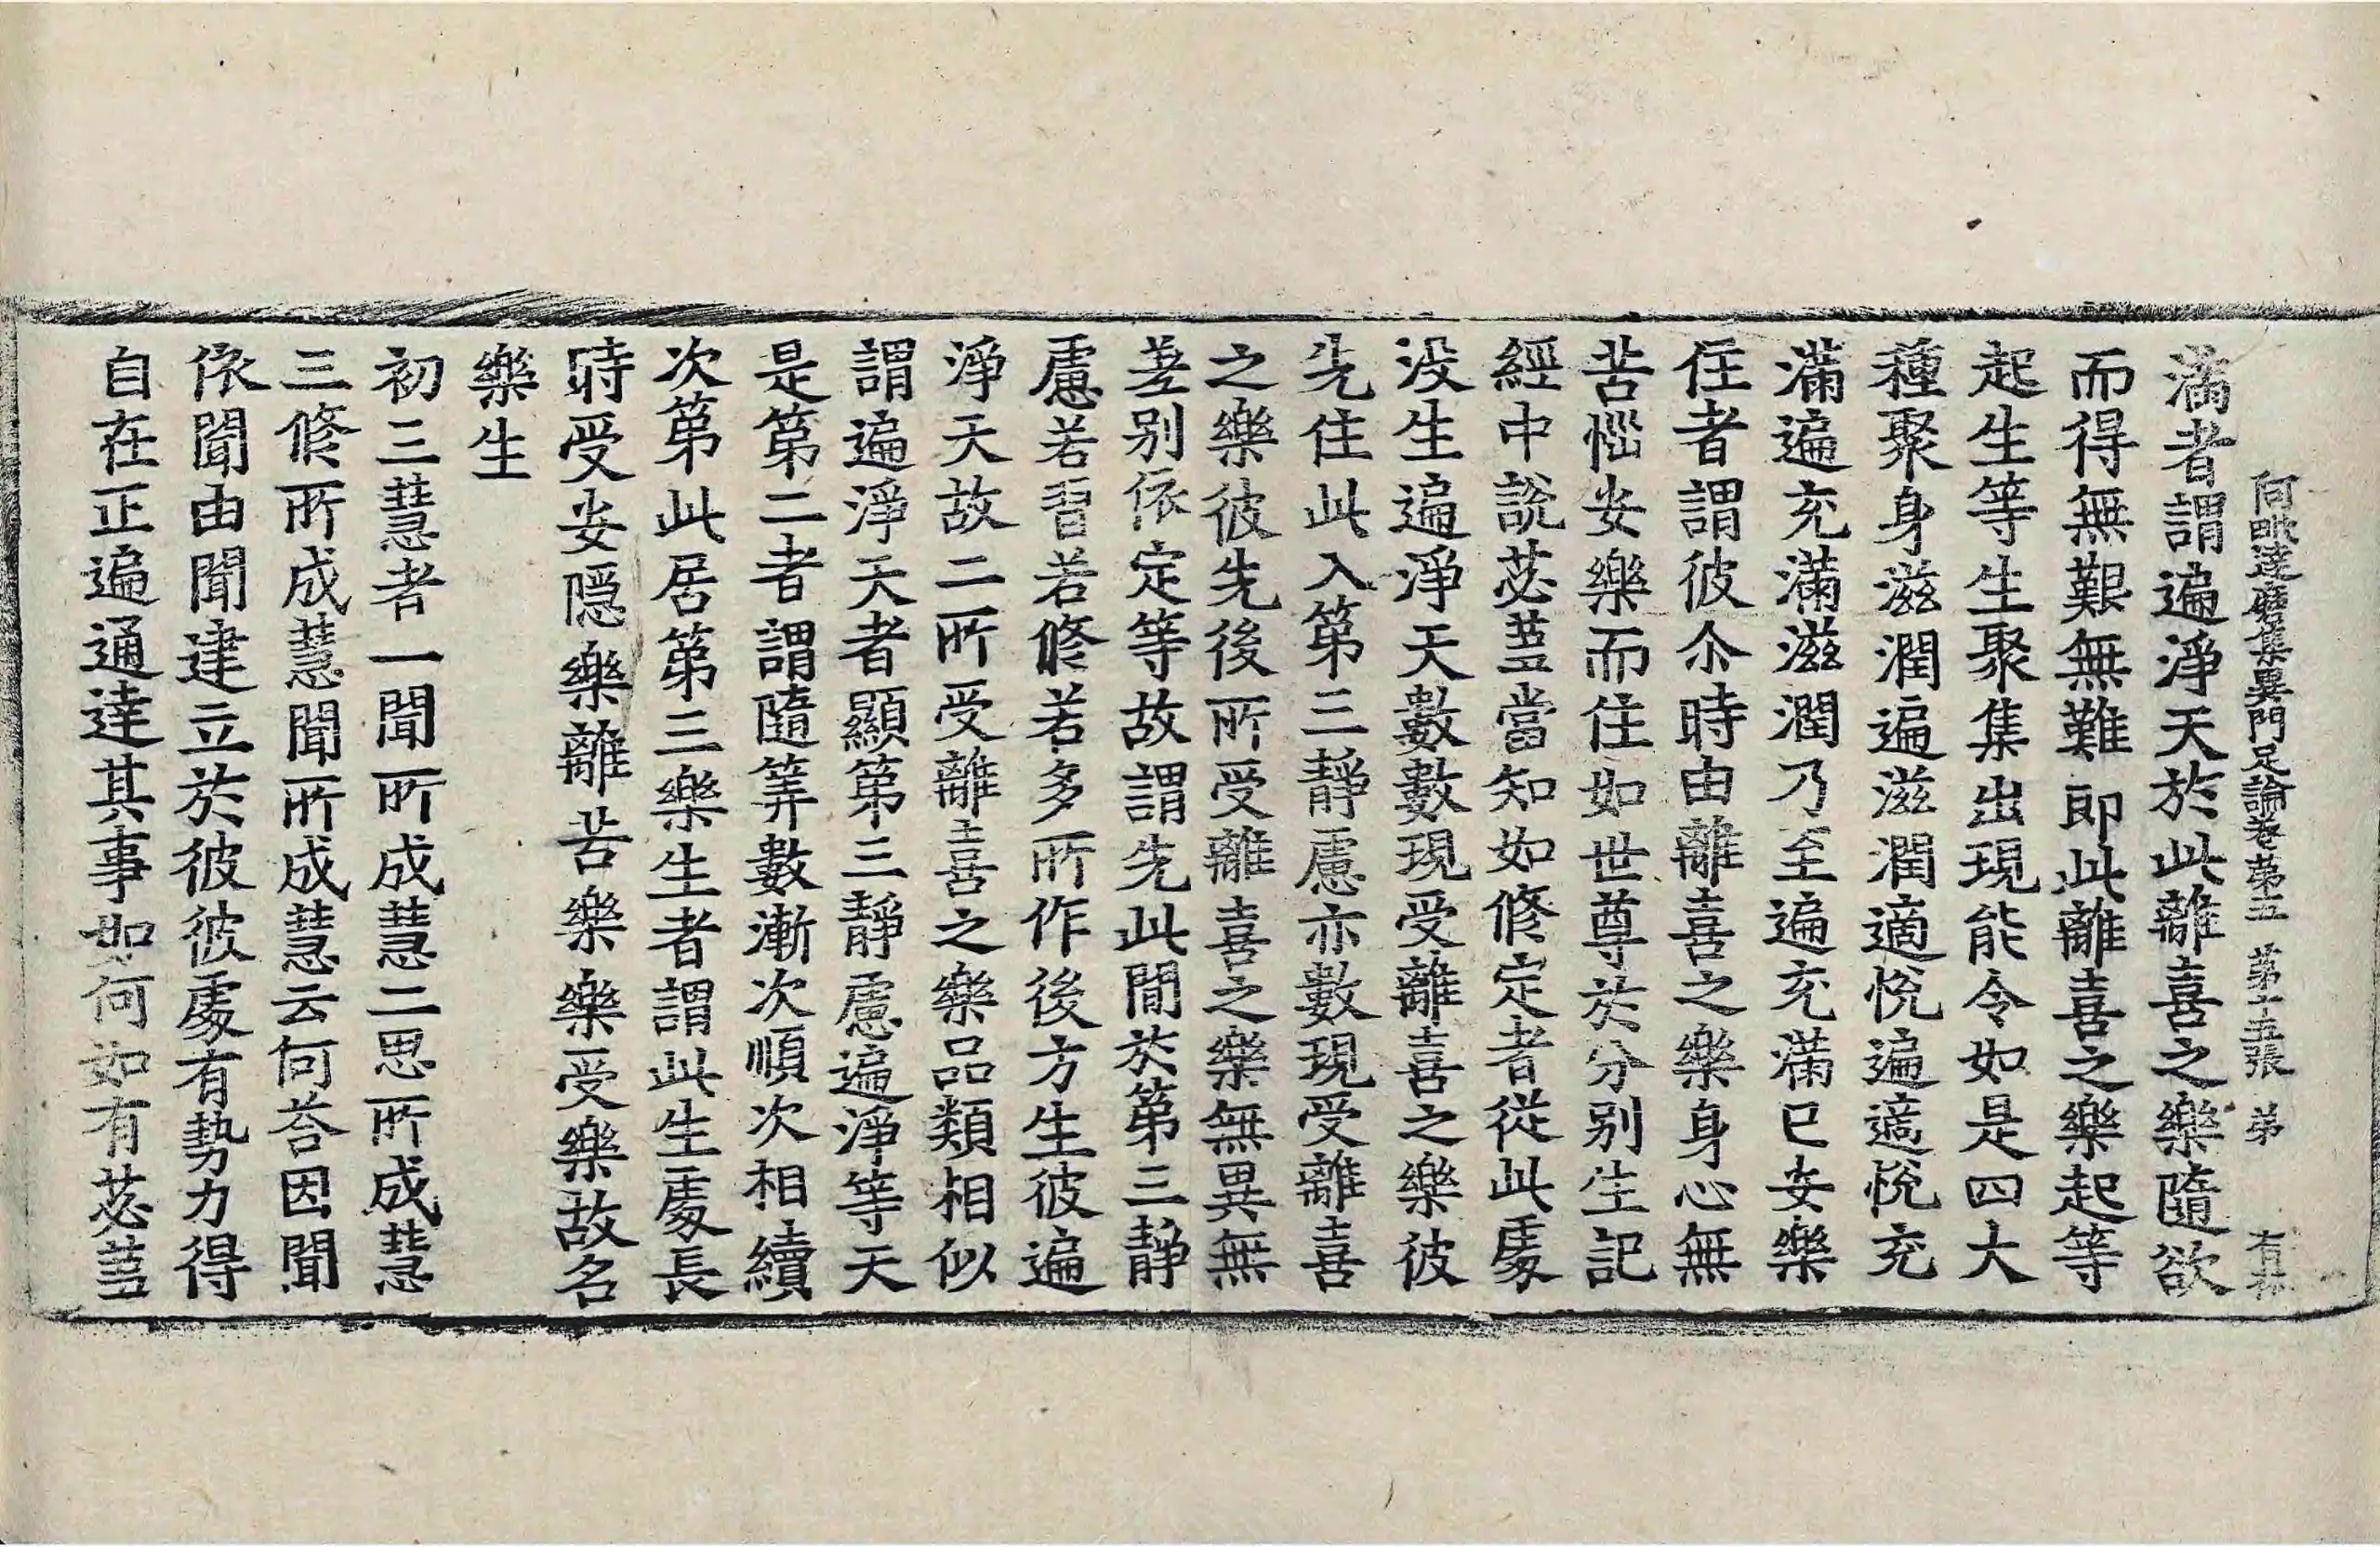 阿毗達磨集異門足論卷第五　第十五張　弟
滿者謂遍淨天於此離喜之樂隨欲
而得無艱無難即此離喜之樂起等
起生等生聚集出現能令如是四大
種聚身滋潤遍滋潤適悅遍適悅充
滿遍充滿滋潤乃至遍充滿已安樂
住者謂彼尒時由離喜之樂身心無
苦惱安樂而住如世尊於分別生記
經中說苾蒭當知如修定者從此處
没生遍淨天數數現受離喜之樂彼
先住此入第三靜慮亦數現受離喜
之樂彼先後所受離喜之樂無異無
差別依定等故謂先此間於第三靜
慮若習若修若多所作後方生彼遍
淨天故二所受離喜之樂品類相似
謂遍淨天者顯第三靜慮遍淨等天
是第二者謂隨筭數漸次順次相續
次第此居第三樂生者謂此生處長
時受安隱樂離苦樂樂受樂故名
樂生
初三慧者一聞所成慧二思所成慧
三修所成慧聞所成慧云何荅因聞
依聞由聞建立於彼彼處有勢力得
自在正遍通達其事如何如有苾蒭